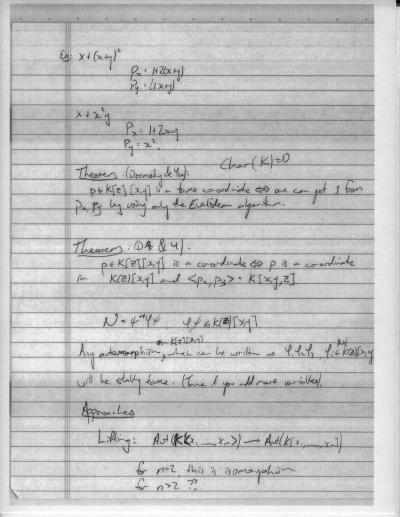 Ex: x+(x+y)²
Pₓ = 1+2(x+y)
P_y = 2(x+y)
x+x²y
Pₓ = 1+2xy
P_y = x².
Char(K)=0
Theorem: (Drensky & Yu):
p∈K[z][x,y] is a tame coordinate ⇔ one can get 1 from
pₓ, p_y by using only the Euclidean algorithm.
Theorem: (D & Y):
p∈K[z][x,y] is a coordinate ⇔ p is a coordinate
in K(z)[x,y] and <pₓ, p_y> = K[x,y,z]
N = ψ⁻¹φψ φ,ψ ∈ K(z)[x,y]
on K[z][x,y]
Any automorphism, which can be written as φ₁φ₂φ₃, φᵢ ∈ K(z)[x,y]
will be stably tame. (Tame if you add more variables).
Approaches
Lifting: Aut(K<x₁, __ xₙ>) → Aut(K[x₁, __ xₙ])
for n=2 this is isomorphism
for n>2 ??